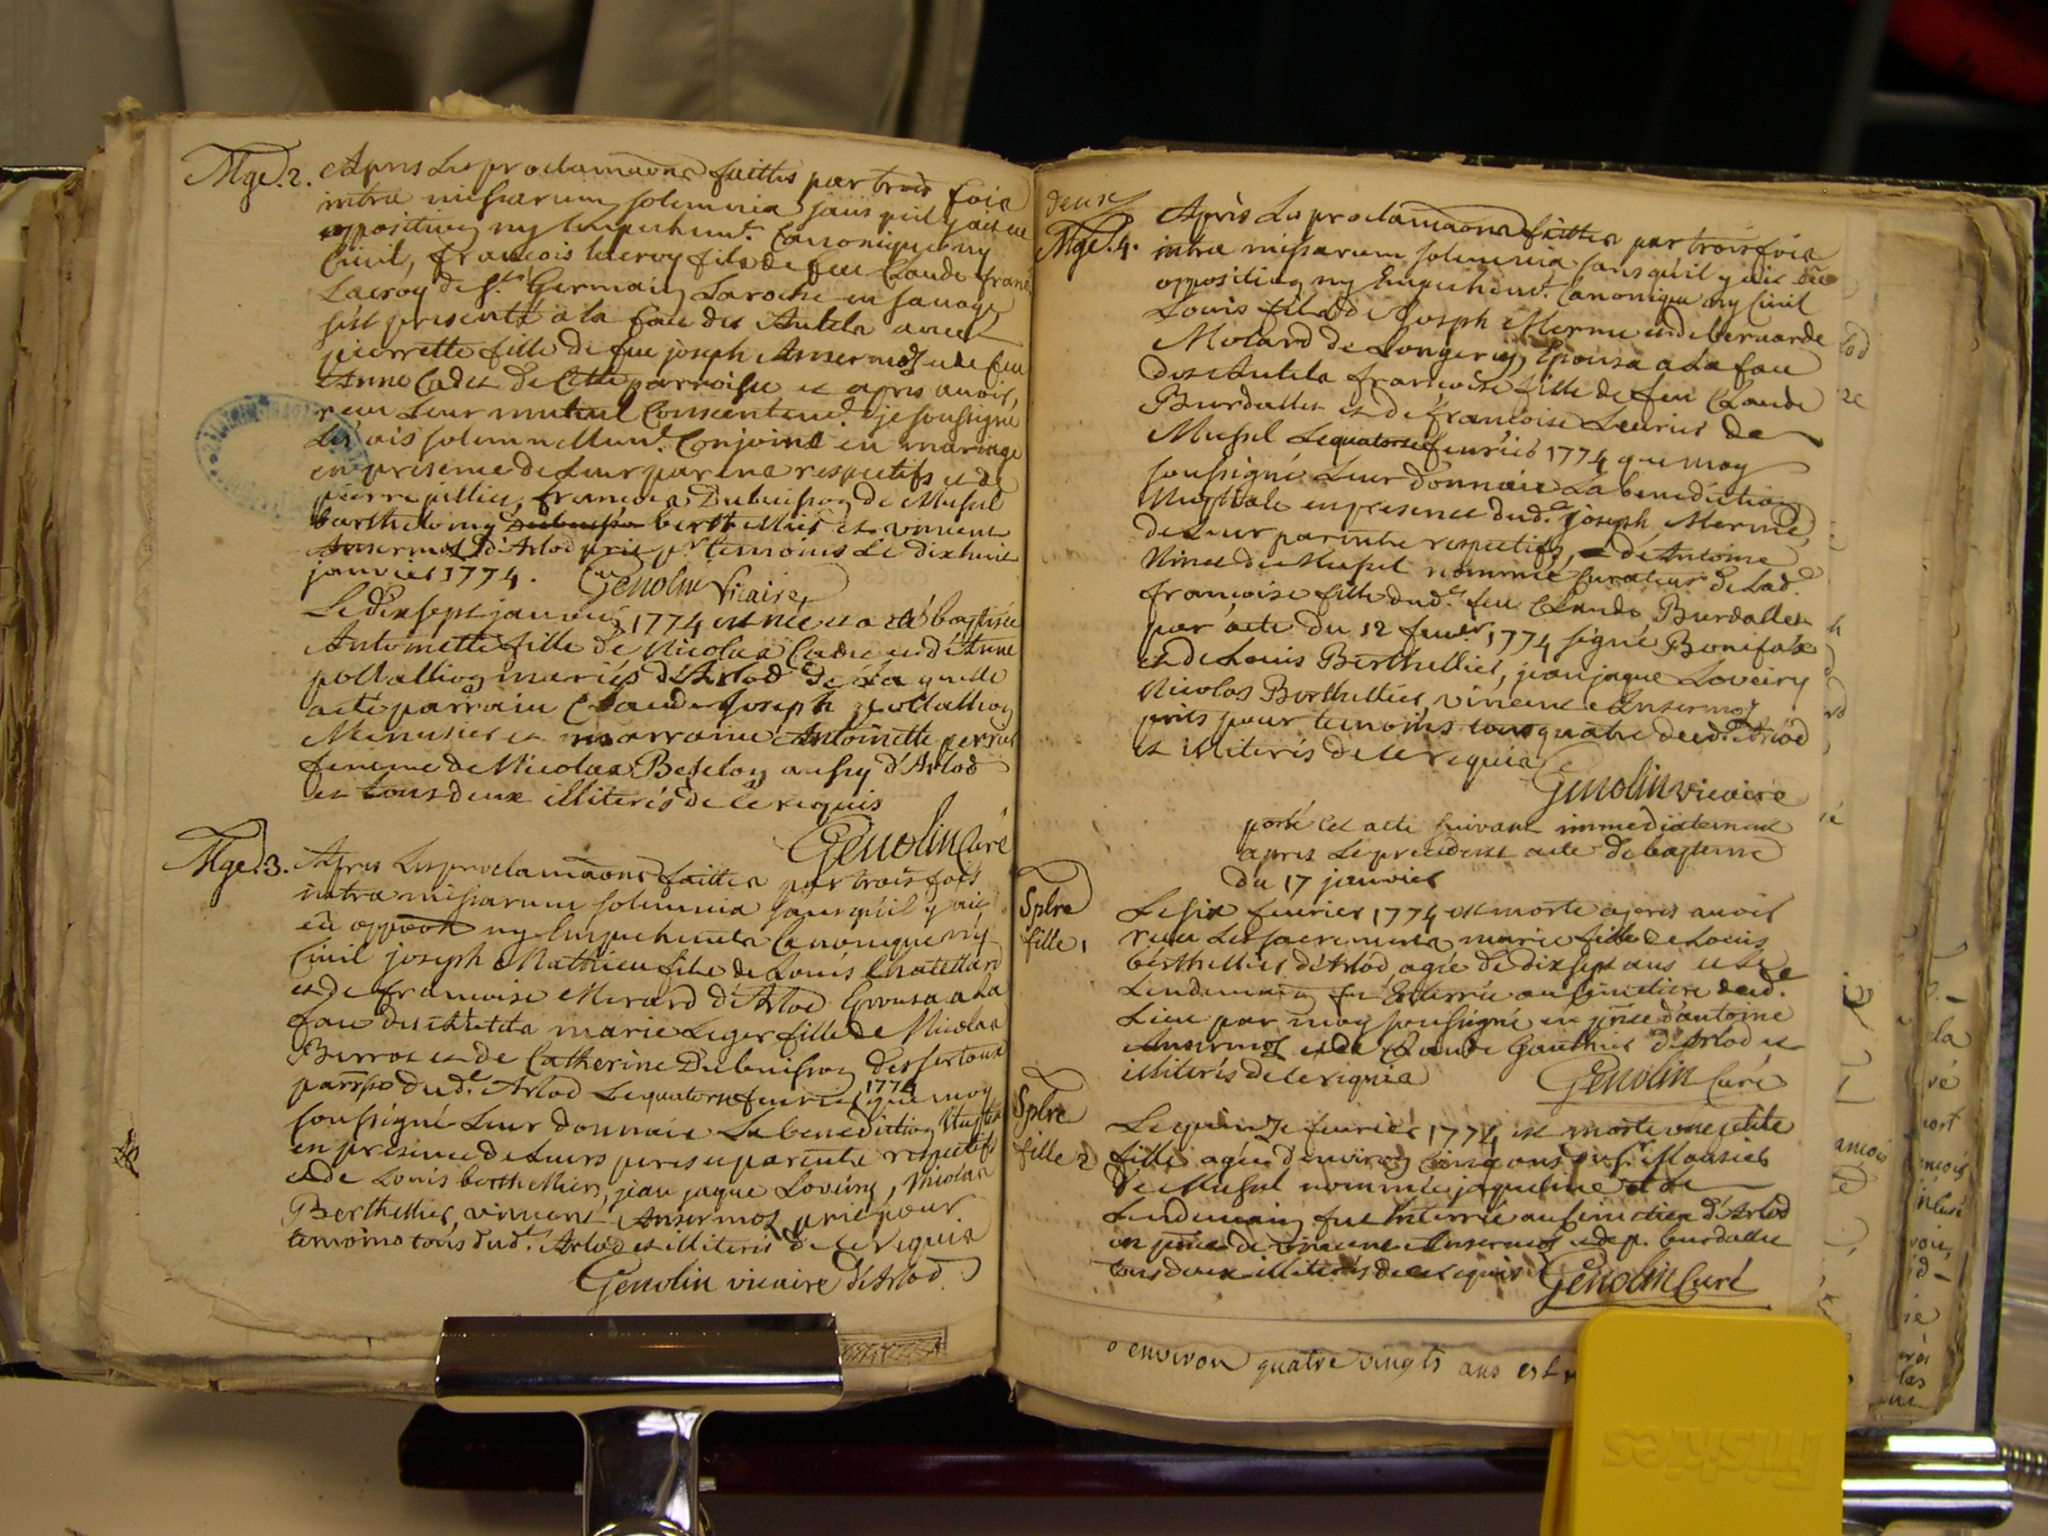 Mge. 2. Apres Les proclamaōns faittes par trois fois
intra missarum solemnia sans quil y ait eu
opposition ny Empechemt. Canonique ny
Civil, françois Lacroy fils de feu Claude franç
Lacroy de St. Germain Laroche en savoye
s'est presenté a la face des Autels avec
pierrette fille de feu joseph Ansermoz et de feu
Anne Cadet de Cette parroisse et apres avoir
receu Leur mutuel Consentemt. je soussigné
Les ais solemnellemt. Conjoint en mariage
en presence de Leur parens respectifs et de
pierre pillier, françois Dubuisson de Mussel
barthelemy berthellier et vincent
Ansermoz d'Arlod pris pr. temoins Le dixhuit
janvier 1774. Genolin vicaire
Le dixsept janvier 1774 est née et a eté baptisée
Antoinette fille de Nicolas Cadet et d'Anne
mariés d'Arlod de La quelle
a eté parrain Claude Joseph
Menusier et marraine Antoinette perret
femme de Nicolas Besson aussy d'Arlod
et tous deux illiterés de ce requis
Genolin Curé
Mge. 3. Apres Les proclamaōns faittes par trois fois
intra missarum solemnia sans qu'il y ait
eü oppoōn ny Empechements Canonique ny
Civil joseph Mathieu fils de Louis Chatellard
et de francoise Merard d'Arlod Epousa a La
face des Autels marie Leger fille de Nicolas
Burros et de Catherine Dubuisson
parrsse dud. Arlod Le quatorse fevrier 1774 que moy
soussigné Leur donnais La benediction Nuptle
en presence de Leurs peres et parents respectifs
et de Louis berthellier, jean jaque Loveiry, Nicolas
Berthellier, vincent Ansermoz pris pour
temoins tous dudt. Arlod et illiterés de ce requis
Genolin vicaire d'Arlod
deux
Mge. 4. Après Les proclamaōns faittes par trois fois
intra missarum solemnia sans qu'il y ait eü
opposition ny Empechemt. Canonique ny Civil
Louis fils de Joseph Merme et de bernarde
Molard de Longeray Epousa a La face
des Autels francoise fille de feu Claude
Burdallet et de francoise Leurier de
Mussel Le quatorse fevrier 1774 que moy
soussigné Leur donnais La benediction
Nuptiale en presence dud. joseph Merme,
de Leur parents respectifs, de Antoine
Ninet de Mussel nommé Curateur de Lad.
francoise fille dud. feu Claude Burdallet
par acte du 12 fevrier 1774 signé Bonifax
et de Louis Berthellier, jean jaque Loveiry
Nicolas Berthellier, vincent Ansermoz
pris pour temoins tous quatre dud. Arlod
et illiterés de ce requis
Genolin vicaire
porté cet acte suivant immediatement
apres Le precedent acte de bapteme
du 17 janvier
Splre fille 1 Le six fevrier 1774 est morte apres avoir
receu Les sacrements marie fille de Louis
berthellier d'Arlod agée de dixsept ans et Le
Lendemain fut Enterrée au simetiere dud.
Lieu par moy soussigné en prñce d'antoine
Ansermoz et de Claude Gauthier d'Arlod et
illiterés de ce requis Genolin Curé
Splre fille 2 Le quinze fevrier 1774 est morte une petite
fille agée d'environ Cinq ans du sr. Mausier
de Mussel nommée jaqueline et Le
Lendemain fut Enterrée au simetiere d'Arlod
en prñce de vincent Ansermoz et de p. burdallet
tous deux illiterés de ce requis Genolin Curé
environ quatre vingts ans est
Friskies